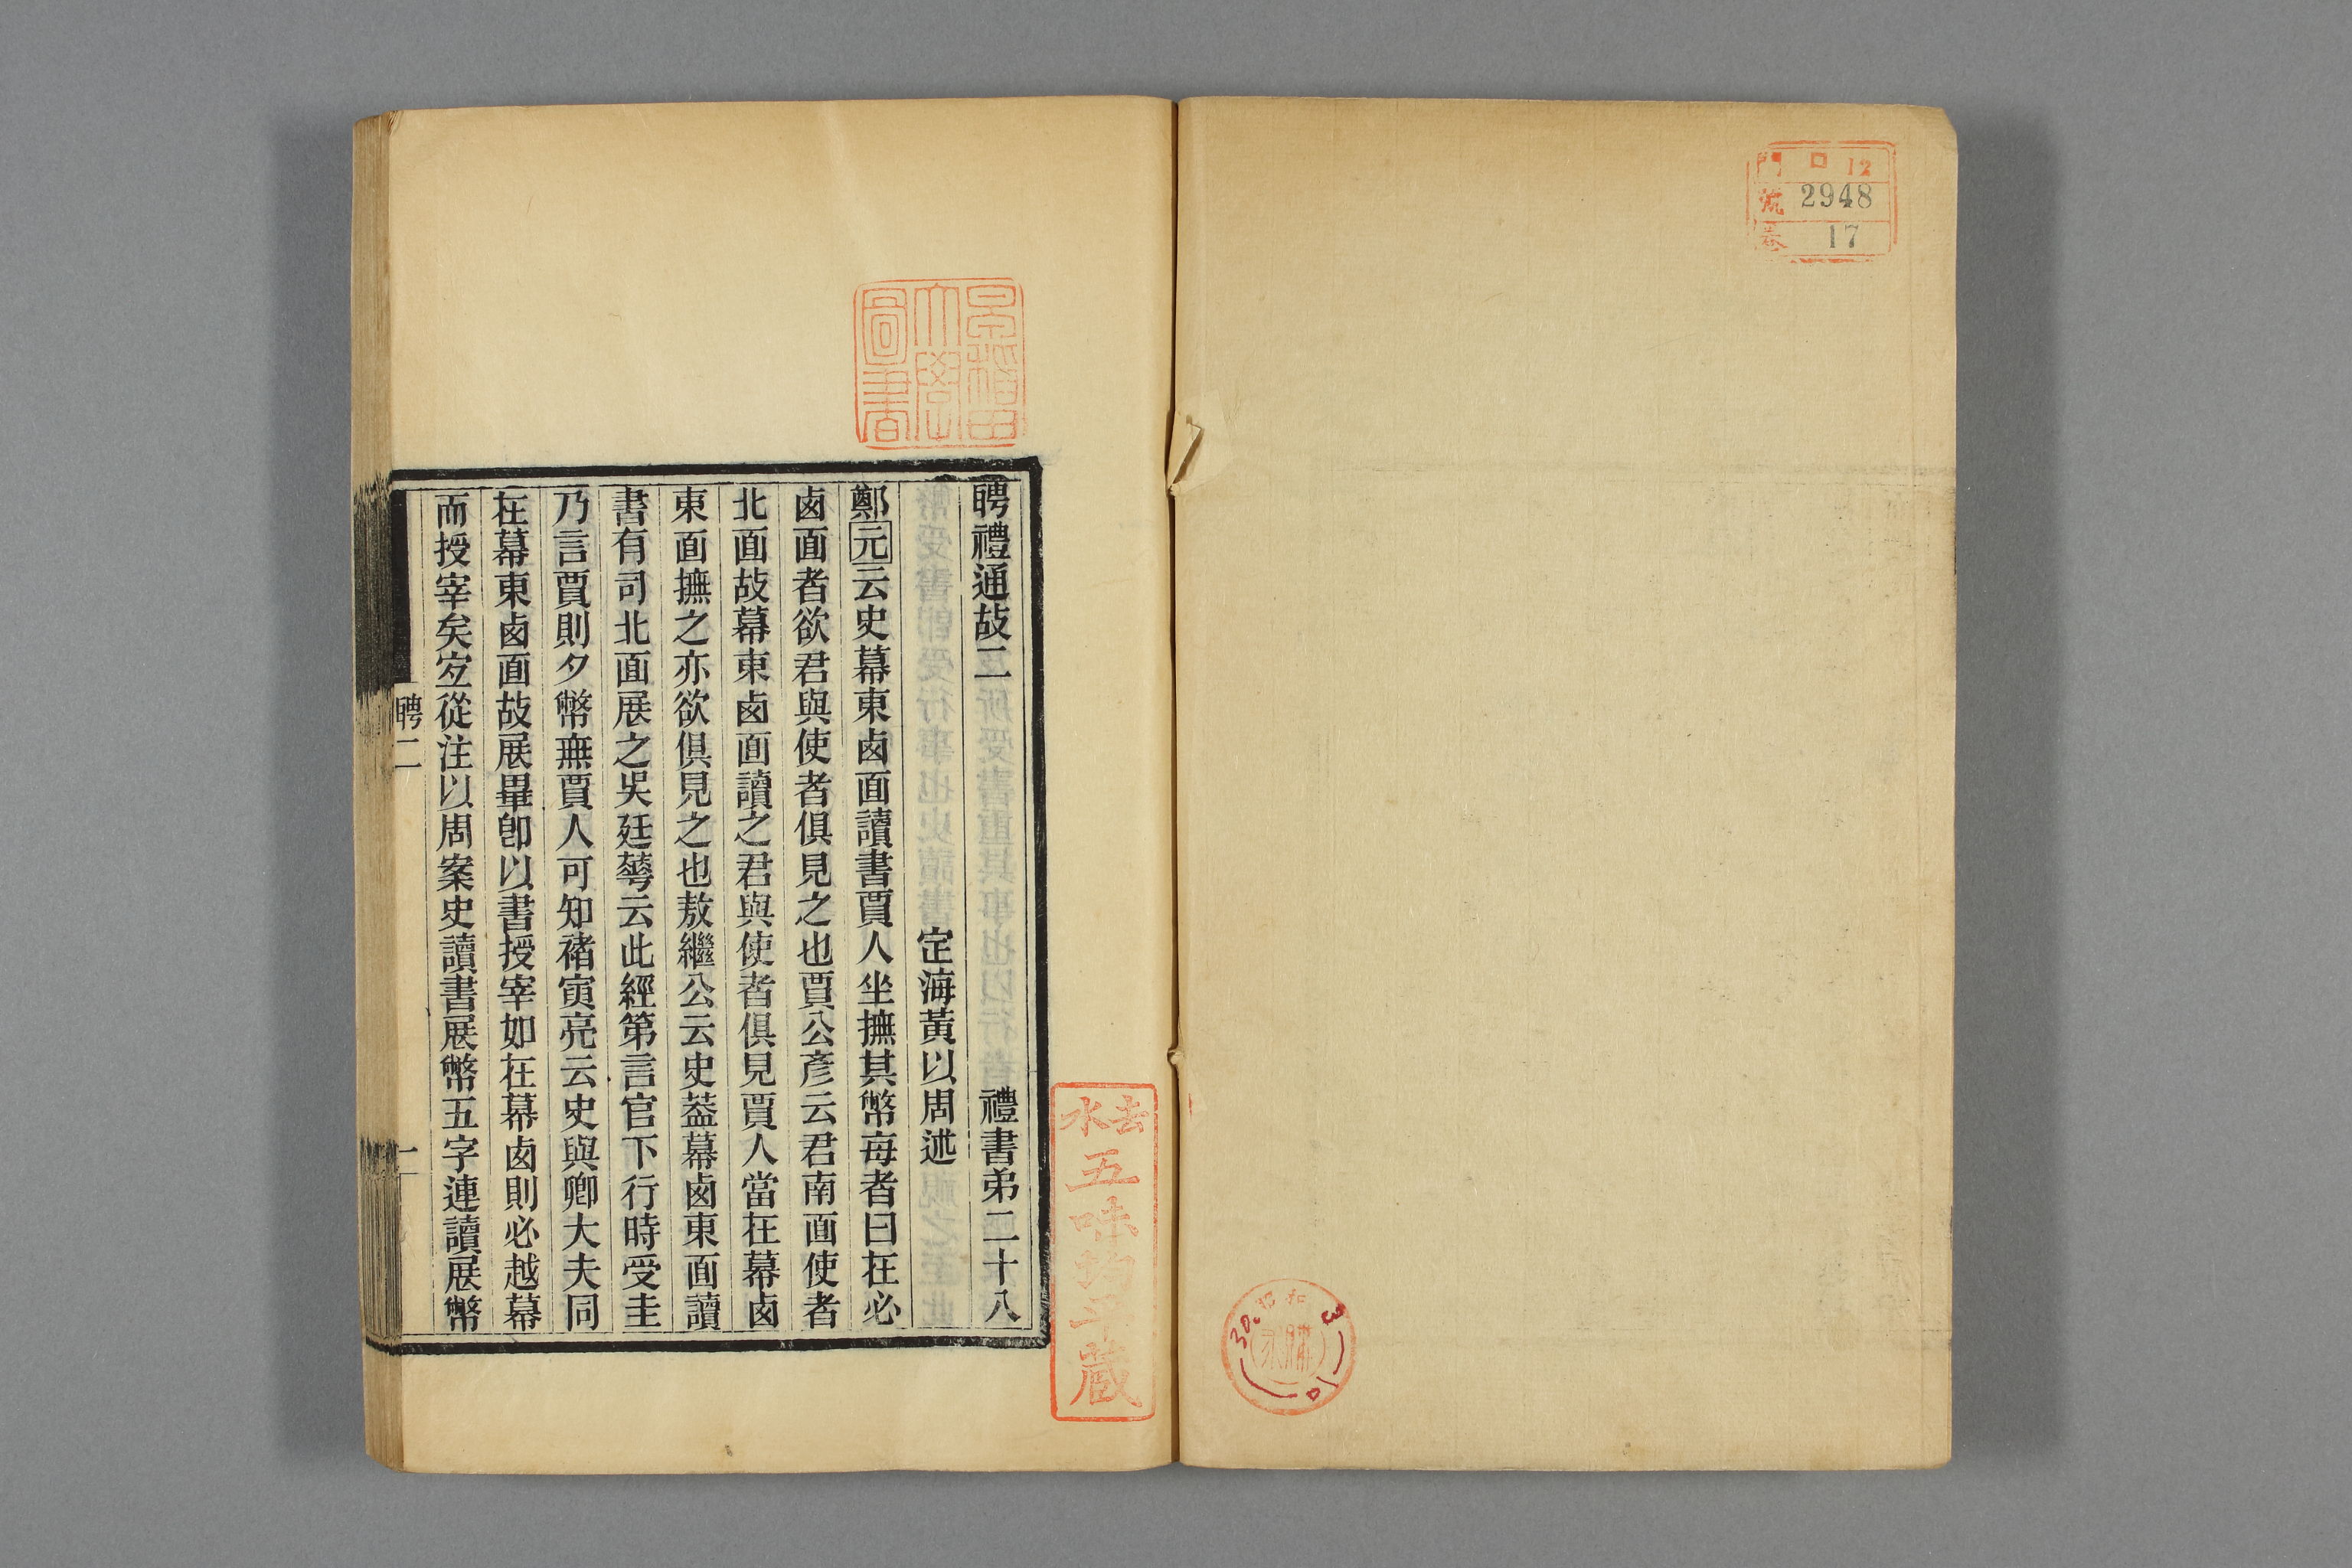 門 口 12
流 2948
卷 17
早稲田
大學
圖書
去水
五味均平蔵
昭和
30. 3 10
聘禮通故二 禮書弟二十八
定海黃以周述
鄭元云史幕東鹵面讀書賈人坐撫其幣每者曰在必
鹵面者欲君與使者俱見之也賈公彥云君南面使者
北面故幕東鹵面讀之君與使者俱見賈人當在幕鹵
東面撫之亦欲俱見之也敖繼公云史葢幕鹵東面讀
書有司北面展之吳廷蕚云此經第言官下行時受圭
乃言賈則夕幣無賈人可知褚寅亮云史與卿大夫同
在幕東鹵面故展畢卽以書授宰如在幕鹵則必越幕
而授宰矣宐從注以周案史讀書展幣五字連讀展幣
聘二
一